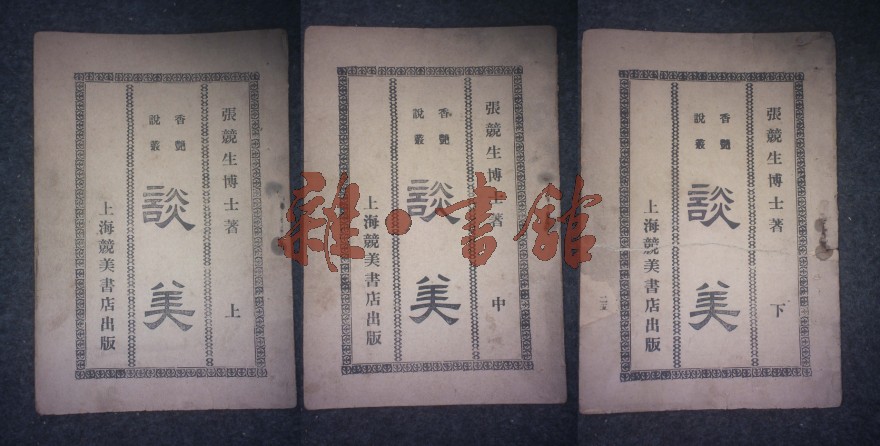 張競生博士著
上
香艷
說叢
談美
上海競美書店出版
張競生博士著
中
香艷
說叢
談美
上海競美書店出版
張競生博士著
下
香艷
說叢
談美
上海競美書店出版
二五
雜·書館